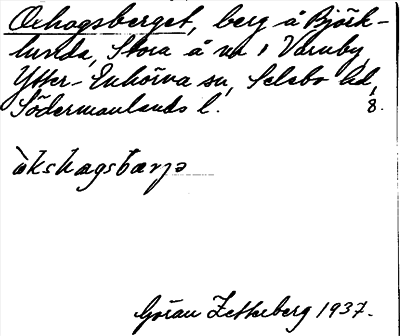 Oxhagsberget, berg å Björk-
lunda, Stora å nr 1 Vamby,
Ytter-Enhörna sn, Selebo hd,
Södermanlands l. 8.
òkshagsbærjə
Göran Zetterberg 1937.